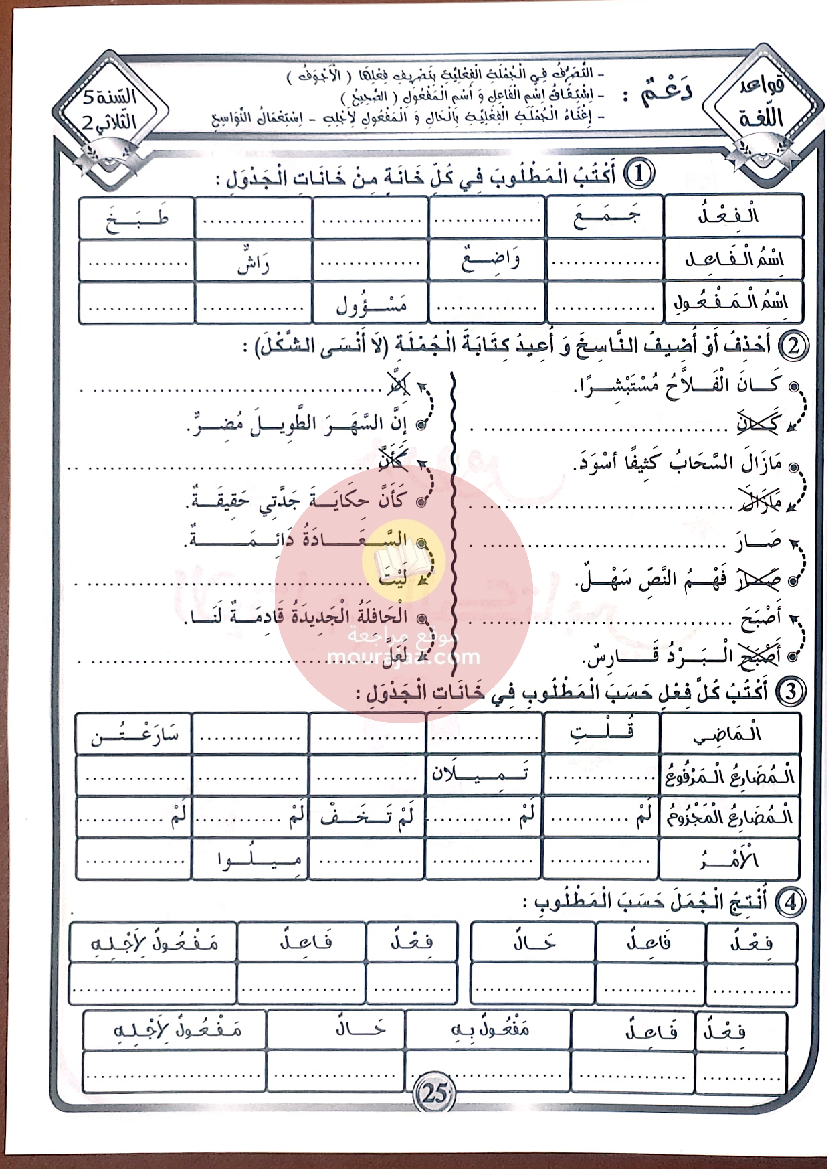 قواعد اللّغة
دَعْمٌ :
- التَّصَرُّفُ فِي الْجُمْلَةِ الْفِعْلِيَّةِ بِتَصْرِيفِ فِعْلِهَا ( الْأَجْوَفُ )
- اِشْتِقَاقُ اسْمِ الْفَاعِلِ وَ اسْمِ الْمَفْعُولِ ( الصَّحِيحُ )
- إِغْنَاءُ الْجُمْلَةِ الْفِعْلِيَّةِ بِالْحَالِ وَ الْمَفْعُولِ لِأَجْلِهِ - اِسْتِعْمَالُ النَّوَاسِخِ
السّنة 5
الثّلاثي 2
1 أَكْتُبُ الْمَطْلُوبَ فِي كُلِّ خَانَةٍ مِنْ خَانَاتِ الْجَدْوَلِ :
الْفِعْلُ جَمَعَ ............ ............ ............ طَبَخَ
اِسْمُ الْفَاعِلِ ............ وَاضِعٌ ............ رَاشٌّ ............
اِسْمُ الْمَفْعُولِ ............ ............ مَسْؤُول ............ ............
2 أَحْذِفُ أَوْ أُضِيفُ النَّاسِخَ وَ أُعِيدُ كِتَابَةَ الْجُمْلَةِ (لَا أَنْسَى الشَّكْلَ) :
كَانَ الْفَلَّاحُ مُسْتَبْشِرًا.
كَانَ ............
مَازَالَ السَّحَابُ كَثِيفًا أسْوَدَ.
مَازَالَ ............
صَارَ ............
صَارَ فَهْمُ النَّصِّ سَهْلٌ.
أَصْبَحَ ............
أَصْبَحَ الْبَرْدُ قَارِسٌ.
إِنَّ ............
إنَّ السَّهَرَ الطَّوِيلَ مُضِرٌّ.
كَأَنَّ ............
كَأَنَّ حِكَايَةَ جَدَّتِي حَقِيقَةٌ.
السَّعَادَةُ دَائِمَةٌ.
لَيْتَ ............
الْحَافِلَةُ الْجَدِيدَةُ قَادِمَةٌ لَنَا.
لَعَلَّ ............
موقع مراجعة
mourajaa.com
3 أَكْتُبُ كُلَّ فِعْلٍ حَسَبَ الْمَطْلُوبِ فِي خَانَاتِ الْجَدْوَلِ :
الْمَاضِي قُلْتِ ............ ............ ............ سَارَعْتُنَّ
الْمُضَارِعُ الْمَرْفُوعُ ............ تَمِيلَانِ ............ ............ ............
الْمُضَارِعُ الْمَجْزُومُ لَمْ ............ لَمْ ............ لَمْ تَخَفْ لَمْ ............ لَمْ ............
الْأَمْرُ ............ ............ ............ مِيلُوا ............
4 أُنْتِجُ الْجُمَلَ حَسَبَ الْمَطْلُوبِ :
فِعْلٌ فَاعِلٌ حَالٌ
............ ............ ............
فِعْلٌ فَاعِلٌ مَفْعُولٌ لِأَجْلِهِ
............ ............ ............
فِعْلٌ فَاعِلٌ مَفْعُولٌ بِهِ حَالٌ مَفْعُولٌ لِأَجْلِهِ
............ ............ ............ ............ ............
25